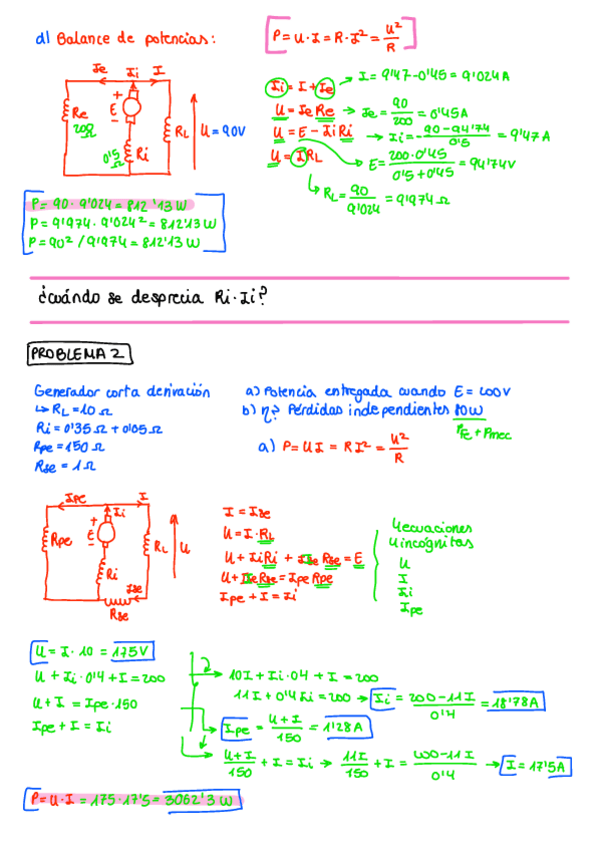 d) Balance de potencias:
P = U·I = R·I² = U²/R
Ie Ii I
+
Re
200Ω
E
-
0'5
Ri
RL
U = 90V
Ii = I + Ie → I = 9'47 - 0'45 = 9'024 A
U = Ie Re → Ie = 90/200 = 0'45A
U = E - Ii Ri → Ii = -(90 - 94'74)/0'5 = 9'47 A
U = I RL
E = 200·0'45/0'5+0'45 = 94'74V
RL = 90/9'024 = 9'974 Ω
P = 90 · 9'024 = 812'13 W
P = 9'974 · 9'024² = 812'13 W
P = 90² / 9'974 = 812'13 W
¿Cuándo se desprecia Ri·Ii?
PROBLEMA 2
Generador corta derivación
↳ RL = 10 Ω
Ri = 0'35 Ω + 0'05 Ω
Rpe = 150 Ω
Rse = 1 Ω
a) Potencia entregada cuando E = 200V
b) η? Pérdidas independientes 80W
PFe + Pmec
a) P = UI = RI² = U²/R
Ipe I
+ Ii
Rpe
E
-
Ri
RL
U
Ise
Rse
I = Ise
U = I·RL
U + Ii Ri + Ise Rse = E
U + Ise Rse = Ipe Rpe
Ipe + I = Ii
4 ecuaciones
4 incógnitas
U
I
Ii
Ipe
U = I · 10 = 175V
U + Ii · 0'4 + I = 200
U + I = Ipe · 150
Ipe + I = Ii
10I + Ii · 0'4 + I = 200
11I + 0'4 Ii = 200 → Ii = 200 - 11I/0'4 = 18'78A
Ipe = U+I/150 = 1'28A
U+I/150 + I = Ii → 11I/150 + I = 200 - 11I/0'4 → I = 17'5A
P = U·I = 175·17'5 = 3062'3 W